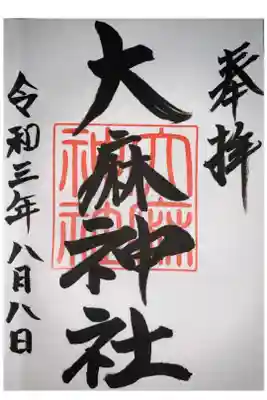 奉拝
大麻神社
令和三年八月八日
大麻
神社